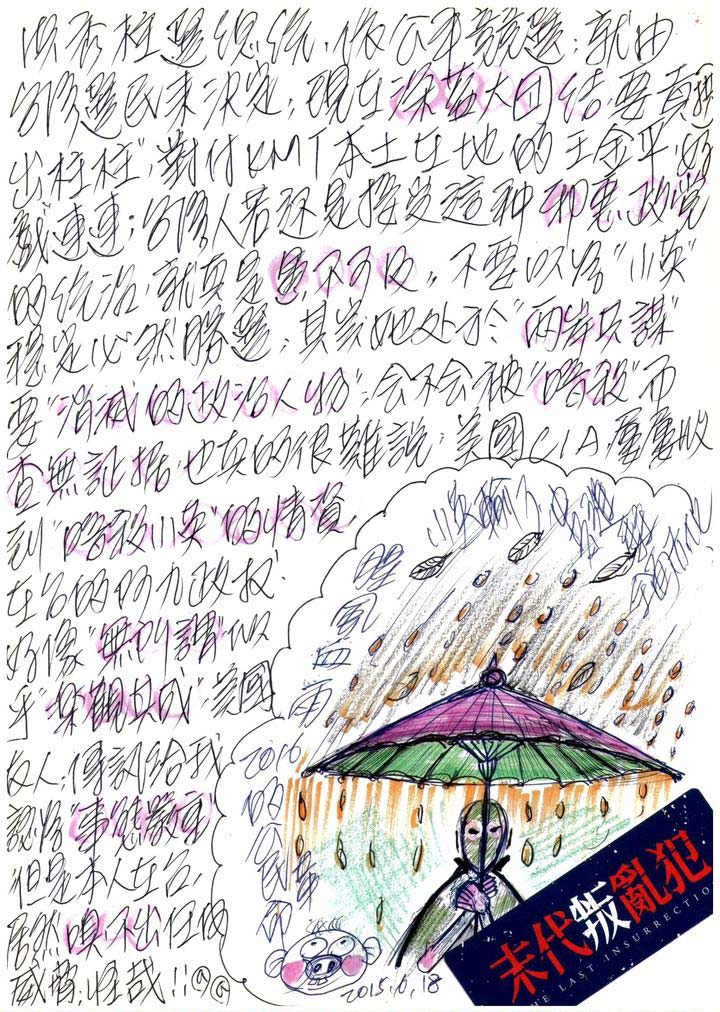 選總統,像公平競選;就由
台灣選民來決定;現在深藍大團結,要
出柱柱";對付KMT本土在地的王金平,好
戲連連;台灣人若還是接受這種邪惡政党
的統治,就真是愚不可及。不要以為"小英"
穩定必然勝選;其實她处於"兩岸共謀"
要"消滅的政治人物";会不会被"暗殺"而
查無証据,也真的很難說;美國CIA,屢屢收
到"暗殺小英"的情資
在台的阿九政权
好像"無所謂"似
乎"樂觀其成";美國
友人,傳訊給我
認為事態嚴重
但是本人在台,
居然嗅不出任何
威脅,怪哉!!
小英輸了
腥風血雨
2016的台民革命
2015.6.18
末代叛亂犯
THE LAST INSURRECTIO